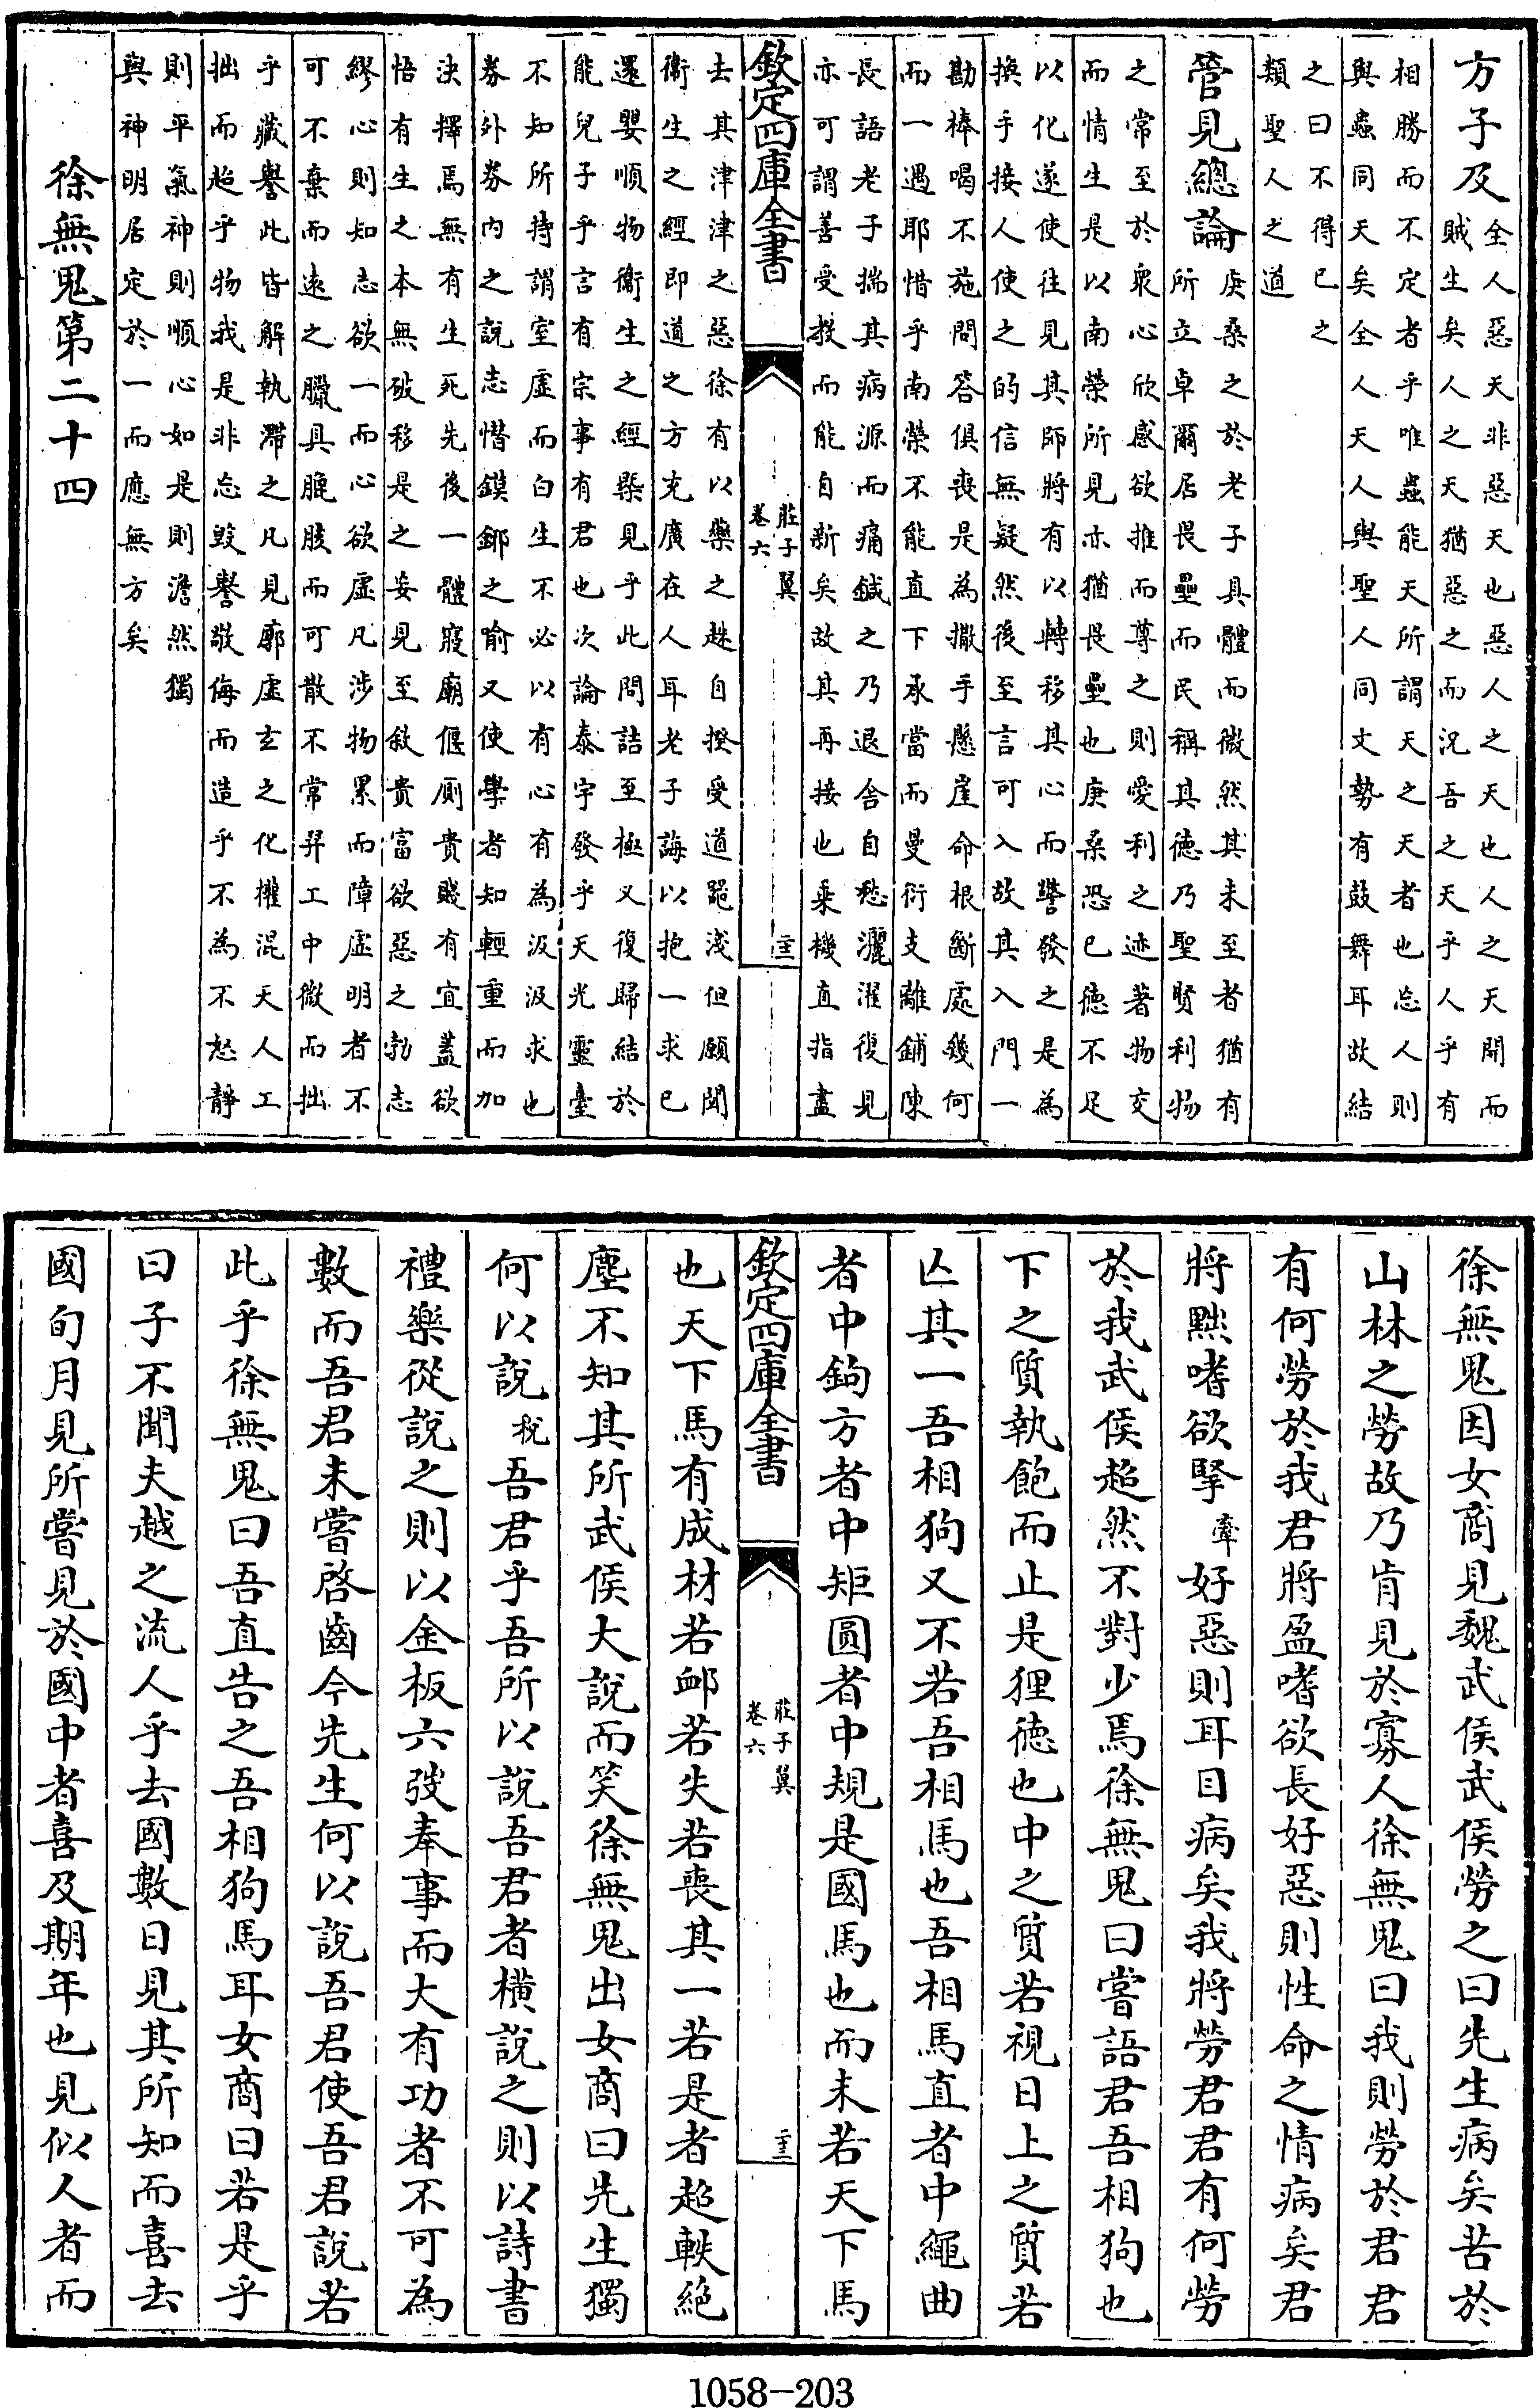 方子及全人惡天非惡天也惡人之天也人之天開而
賊生矣人之天猶惡之而況吾之天乎人乎有
相勝而不定者乎唯蟲能天所謂天之天者也忘人則
與蟲同天矣全人天人與聖人同丈勢有鼓舞耳故結
之曰不得已之
類聖人之道
管見總論庚桑之於老子具體而微然其未至者猶有
所立卓爾居畏壘而民稱其德乃聖賢利物
之常至於衆心欣感欲推而尊之則愛利之迹著物交
而情生是以南榮所見亦猶畏壘也庚桑恐已德不足
以化遂使往見其師將有以轉移其心而警發之是為
換手接人使之的信無疑然後至言可入故其入門一
勘棒喝不施問答俱喪是為撒手懸崖命根斷處幾何
而一遇耶惜乎南榮不能直下承當而曼衍支離鋪陳
長語老子揣其病源而痛鍼之乃退舍自愁灑濯復見
亦可謂善受教而能自新矣故其再接也乗機直指盡
欽定四庫全書
莊子翼
卷六
去其津津之惡徐有以藥之趎自揆受道器淺但願聞
衛生之經即道之方充廣在人耳老子誨以抱一求己
還嬰順物衛生之經槩見乎此問詰至極又復歸結於
能兒子乎言有宗事有君也次論泰宇發乎天光靈臺
不知所持謂室虛而白生不必以有心有為汲汲求也
券外券内之說志憯鏌鋣之喻又使學者知輕重而加
決擇焉無有生死先後一體寢廟偃厠貴賤有宜蓋欲
悟有生之本無破移是之妄見至敘貴富欲惡之勃志
繆心則知志欲一而心欲虛凡涉物累而障虛明者不
可不棄而遠之臘具膍胲而可散不常羿工中微而拙
乎藏譽此皆解執滯之凡見廓虛玄之化權混天人工
拙而超乎物我是非忘毀譽敬侮而造乎不為不怒靜
則平氣神則順心如是則澹然獨
與神明居定於一而應無方矣
徐無鬼第二十四
徐無鬼因女商見魏武侯武侯勞之曰先生病矣苦於
山林之勞故乃肯見於寡人徐無鬼曰我則勞於君君
有何勞於我君將盈嗜欲長好惡則性命之情病矣君
將黜嗜欲掔牽好惡則耳目病矣我將勞君君有何勞
於我武侯超然不對少焉徐無鬼曰嘗語君吾相狗也
下之質執飽而止是狸德也中之質若視日上之質若
亾其一吾相狗又不若吾相馬也吾相馬直者中繩曲
者中鉤方者中矩圓者中規是國馬也而未若天下馬
欽定四庫全書
莊子翼
卷六
也天下馬有成材若卹若失若喪其一若是者超軼絕
塵不知其所武侯大說而笑徐無鬼出女商曰先生獨
何以說稅吾君乎吾所以說吾君者橫說之則以詩書
禮樂從說之則以金板六弢奉事而大有功者不可為
數而吾君未嘗啓齒今先生何以說吾君使吾君說若
此乎徐無鬼曰吾直告之吾相狗馬耳女商曰若是乎
曰子不聞夫越之流人乎去國數日見其所知而喜去
國旬月見所嘗見於國中者喜及期年也見似人者而
1058-203